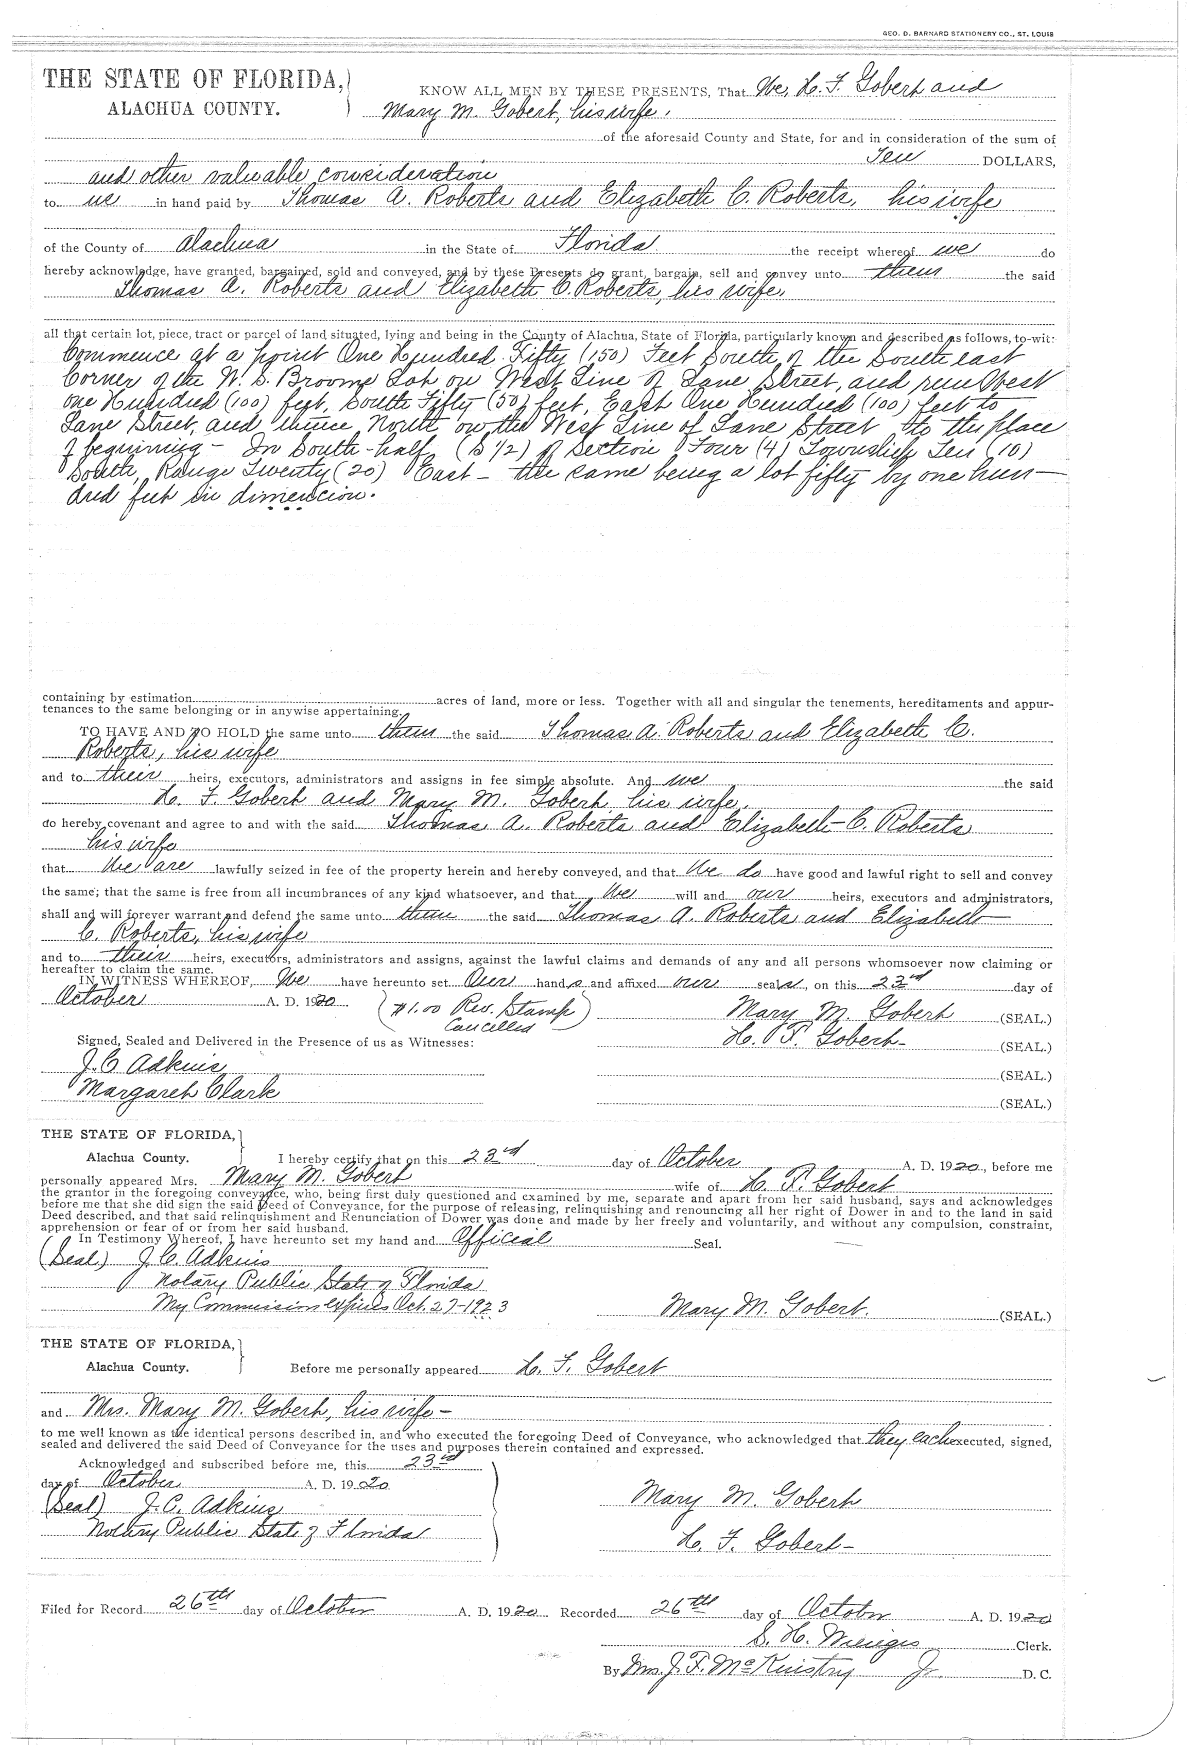 GEO. D. BARNARD STATIONERY CO., ST. LOUIS
THE STATE OF FLORIDA,
ALACHUA COUNTY.
KNOW ALL MEN BY THESE PRESENTS, That We, H. F. Gobert and
Mary M. Gobert, his wife,
of the aforesaid County and State, for and in consideration of the sum of
Ten DOLLARS,
and other valuable consideration
to us in hand paid by Thomas A. Roberts and Elizabeth C. Roberts, his wife
of the County of Alachua in the State of Florida the receipt whereof we do
hereby acknowledge, have granted, bargained, sold and conveyed, and by these Presents do grant, bargain, sell and convey unto them the said
Thomas A. Roberts and Elizabeth C. Roberts, his wife,
all that certain lot, piece, tract or parcel of land situated, lying and being in the County of Alachua, State of Florida, particularly known and described as follows, to-wit:
Commence at a point One Hundred Fifty (150) Feet South of the South east
Corner of the W. S. Broome Lot on West Line of Lane Street, and run West
one Hundred (100) feet, South Fifty (50) feet, East One Hundred (100) feet to
Lane Street, and thence North on the West Line of Lane Street to the place
of beginning - In South-half (S 1/2) of Section Four (4) Township Ten (10)
South, Range Twenty (20) East - the same being a lot fifty by one hun-
dred feet in dimencion.
containing by estimation acres of land, more or less. Together with all and singular the tenements, hereditaments and appur-
tenances to the same belonging or in anywise appertaining.
TO HAVE AND TO HOLD the same unto them the said Thomas A. Roberts and Elizabeth C.
Roberts, his wife
and to their heirs, executors, administrators and assigns in fee simple absolute. And we the said
H. F. Gobert and Mary M. Gobert his wife,
do hereby covenant and agree to and with the said Thomas A. Roberts and Elizabeth C. Roberts
his wife
that We are lawfully seized in fee of the property herein and hereby conveyed, and that We do have good and lawful right to sell and convey
the same; that the same is free from all incumbrances of any kind whatsoever, and that We will and our heirs, executors and administrators,
shall and will forever warrant and defend the same unto them the said Thomas A. Roberts and Elizabeth
C. Roberts, his wife
and to their heirs, executors, administrators and assigns, against the lawful claims and demands of any and all persons whomsoever now claiming or
hereafter to claim the same.
IN WITNESS WHEREOF, We have hereunto set Our hands and affixed our seals, on this 23rd day of
October A. D. 1920 ($1.00 Rev. Stamp Cancelled) Mary M. Gobert (SEAL.)
H. F. Gobert (SEAL.)
Signed, Sealed and Delivered in the Presence of us as Witnesses:
J. C. Adkins (SEAL.)
Margaret Clark (SEAL.)
THE STATE OF FLORIDA,
Alachua County.
I hereby certify that on this 23rd day of October A. D. 1920, before me
personally appeared Mrs. Mary M. Gobert wife of H. F. Gobert
the grantor in the foregoing conveyance, who, being first duly questioned and examined by me, separate and apart from her said husband, says and acknowledges
before me that she did sign the said Deed of Conveyance, for the purpose of releasing, relinquishing and renouncing all her right of Dower in and to the land in said
Deed described, and that said relinquishment and Renunciation of Dower was done and made by her freely and voluntarily, and without any compulsion, constraint,
apprehension or fear of or from her said husband.
In Testimony Whereof, I have hereunto set my hand and Official Seal.
(Seal) J. C. Adkins
Notary Public State of Florida
My Commission expires Oct. 27-1923 Mary M. Gobert. (SEAL.)
THE STATE OF FLORIDA,
Alachua County.
Before me personally appeared H. F. Gobert
and Mrs. Mary M. Gobert, his wife-
to me well known as the identical persons described in, and who executed the foregoing Deed of Conveyance, who acknowledged that they each executed, signed,
sealed and delivered the said Deed of Conveyance for the uses and purposes therein contained and expressed.
Acknowledged and subscribed before me, this 23rd
day of October A. D. 19020
(Seal) J. C. Adkins Mary M. Gobert
Notary Public State of Florida H. F. Gobert-
Filed for Record 26th day of October A. D. 1920 Recorded 26th day of October A. D. 1920
S. H. Wienges Clerk.
By Mrs. J. F. McKinstry Jr D. C.